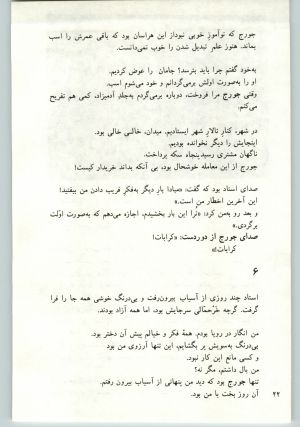 جورج که نوآموز خوبی نبود از این هراسان بود که باقی عمرش را اسب
بماند. هنوز علم تبدیل شدن را خوب نمی‌دانست.
به‌خود گفتم چرا باید بترسد؟ جامان را عوض کردیم.
او را به‌صورت اولش برمی‌گردانم و خود می‌شوم اسب.
وقتی جورج مرا فروخت، دوباره برمی‌گردم به‌جلدِ آدمیزاد، کمی هم تفریح
می‌کنم.
در شهر، کنار تالار شهر ایستادیم. میدان، خالی خالی بود.
اینجایش را دیگر نخوانده بودیم.
ناگهان مشتری رسید پنجاه سکه پرداخت.
جورج از این معامله خوشحال بود، بی آنکه بداند خریدار کیست!
صدای استاد بود که گفت: «مبادا بار دیگر به‌فکر فریب دادن من بیفتید!
این آخرین اخطار من است.»
و بعد رو به‌من کرد: «ترا این بار بخشیدم، اجازه می‌دهم که به‌صورت اوّلت
برگردی.»
صدای جورج از دوردست: «کرابات!
کرابات!»
۶
استاد چند روزی از آسیاب بیرون‌رفت و بی‌درنگ خوشی همه جا را فرا
گرفت. گرچه خرحمّالی سرجایش بود، اما همه آزاد بودند.
من انگار در رویا بودم. همهٔ فکر و خیالم پیش آن دختر بود.
بی‌درنگ به‌سویش پر بگشایم، این تنها آرزوی من بود
و کسی مانع این کار نبود.
من بال داشتم، مگر نه؟
تنها جورج بود که دید من پنهانی از آسیاب بیرون رفتم.
آن روز بخت با من بود.
۲۲